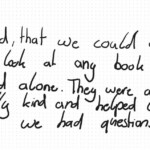 that we could
look at any book
alone. They were
kind and helped
we had question